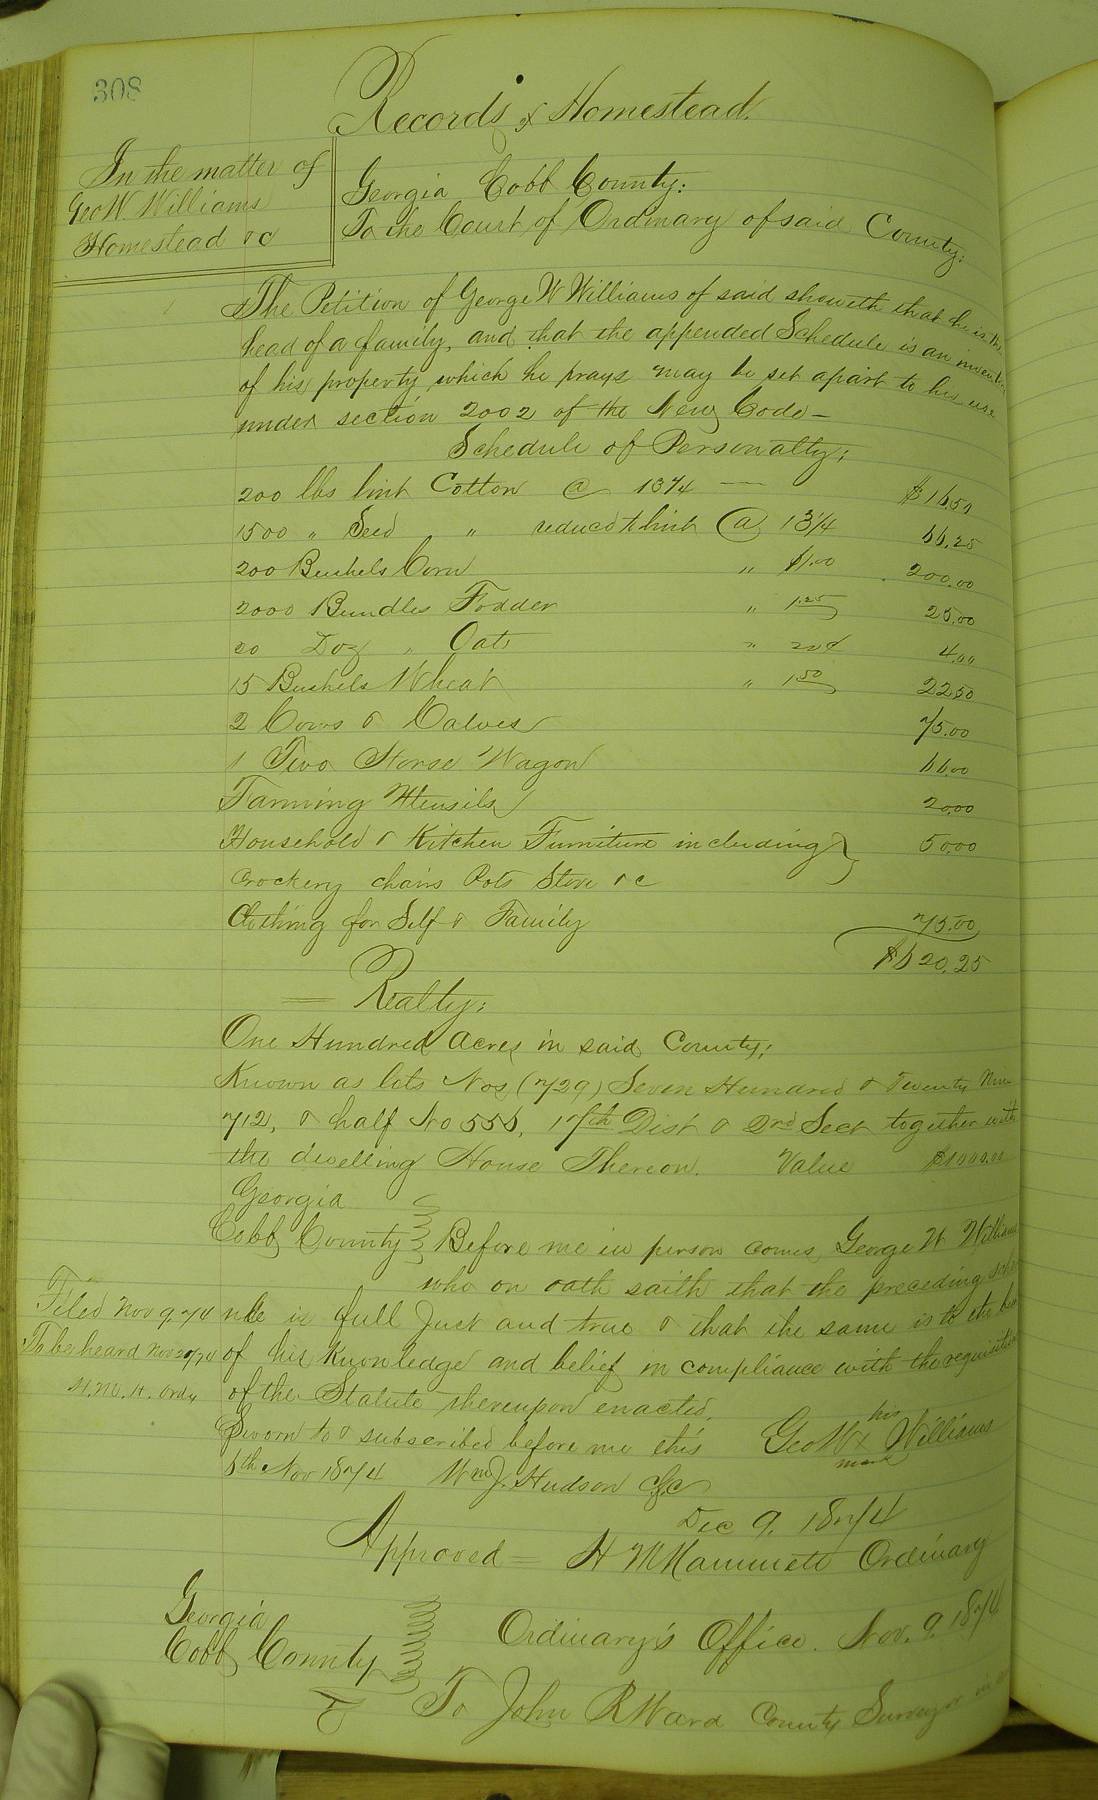 308
Records of Homestead.
In the matter of
Geo W Williams
Homestead &c
Georgia Cobb County:
To the Court of Ordinary of said County:
The Petition of George W Williams of said showeth that he is the
head of a family, and that the appended Schedule is an
of his property which he prays may be set apart to his use
under section 2002 of the New Code –
Schedule of Personalty:
200 lbs lint Cotton @ 13¼ — $16.50
1500 " Seed " reduced to lint @ 13¼ 66.25
200 Bushels Corn " $1.00 200.00
2000 Bundles Fodder " 1.25 25.00
20 Doz " Oats " 20¢ 4.00
15 Bushels Wheat " 1.50 22.50
2 Cows & Calves 75.00
1 Two Horse Wagon 66.00
Farming Utensils 20.00
Household & Kitchen Furniture including } 50.00
Crockery chairs Pots Stove &c
Clothing for Self & Family 75.00
$620.25
= Realty:
One Hundred Acres in said County;
Known as lots Nos (729) Seven Hundred & Twenty Nine
712, & half No 556, 17th Dist & 2nd Sect together with
the dwelling House Thereon. Value $1000.00
Georgia
Cobb County } Before me in person comes George W Williams
who on oath saith that the preceding sche
Filed Nov 9, 74 ule is full Just and true & that the same is to the best
To be heard Nov 20/74 of his Knowledge and belief in compliance with the requisition
H.M.H. Ordy of the Statute thereupon enacted.
Sworn to & subscribed before me this Geo W his x mark Williams
6th Nov 1874 Wm J. Hudson
Dec 9, 1874
Approved = H M Hammett Ordinary
Georgia
Cobb County } Ordinary's Office. Nov. 9, 1874
To John R Ward County Surveyor in